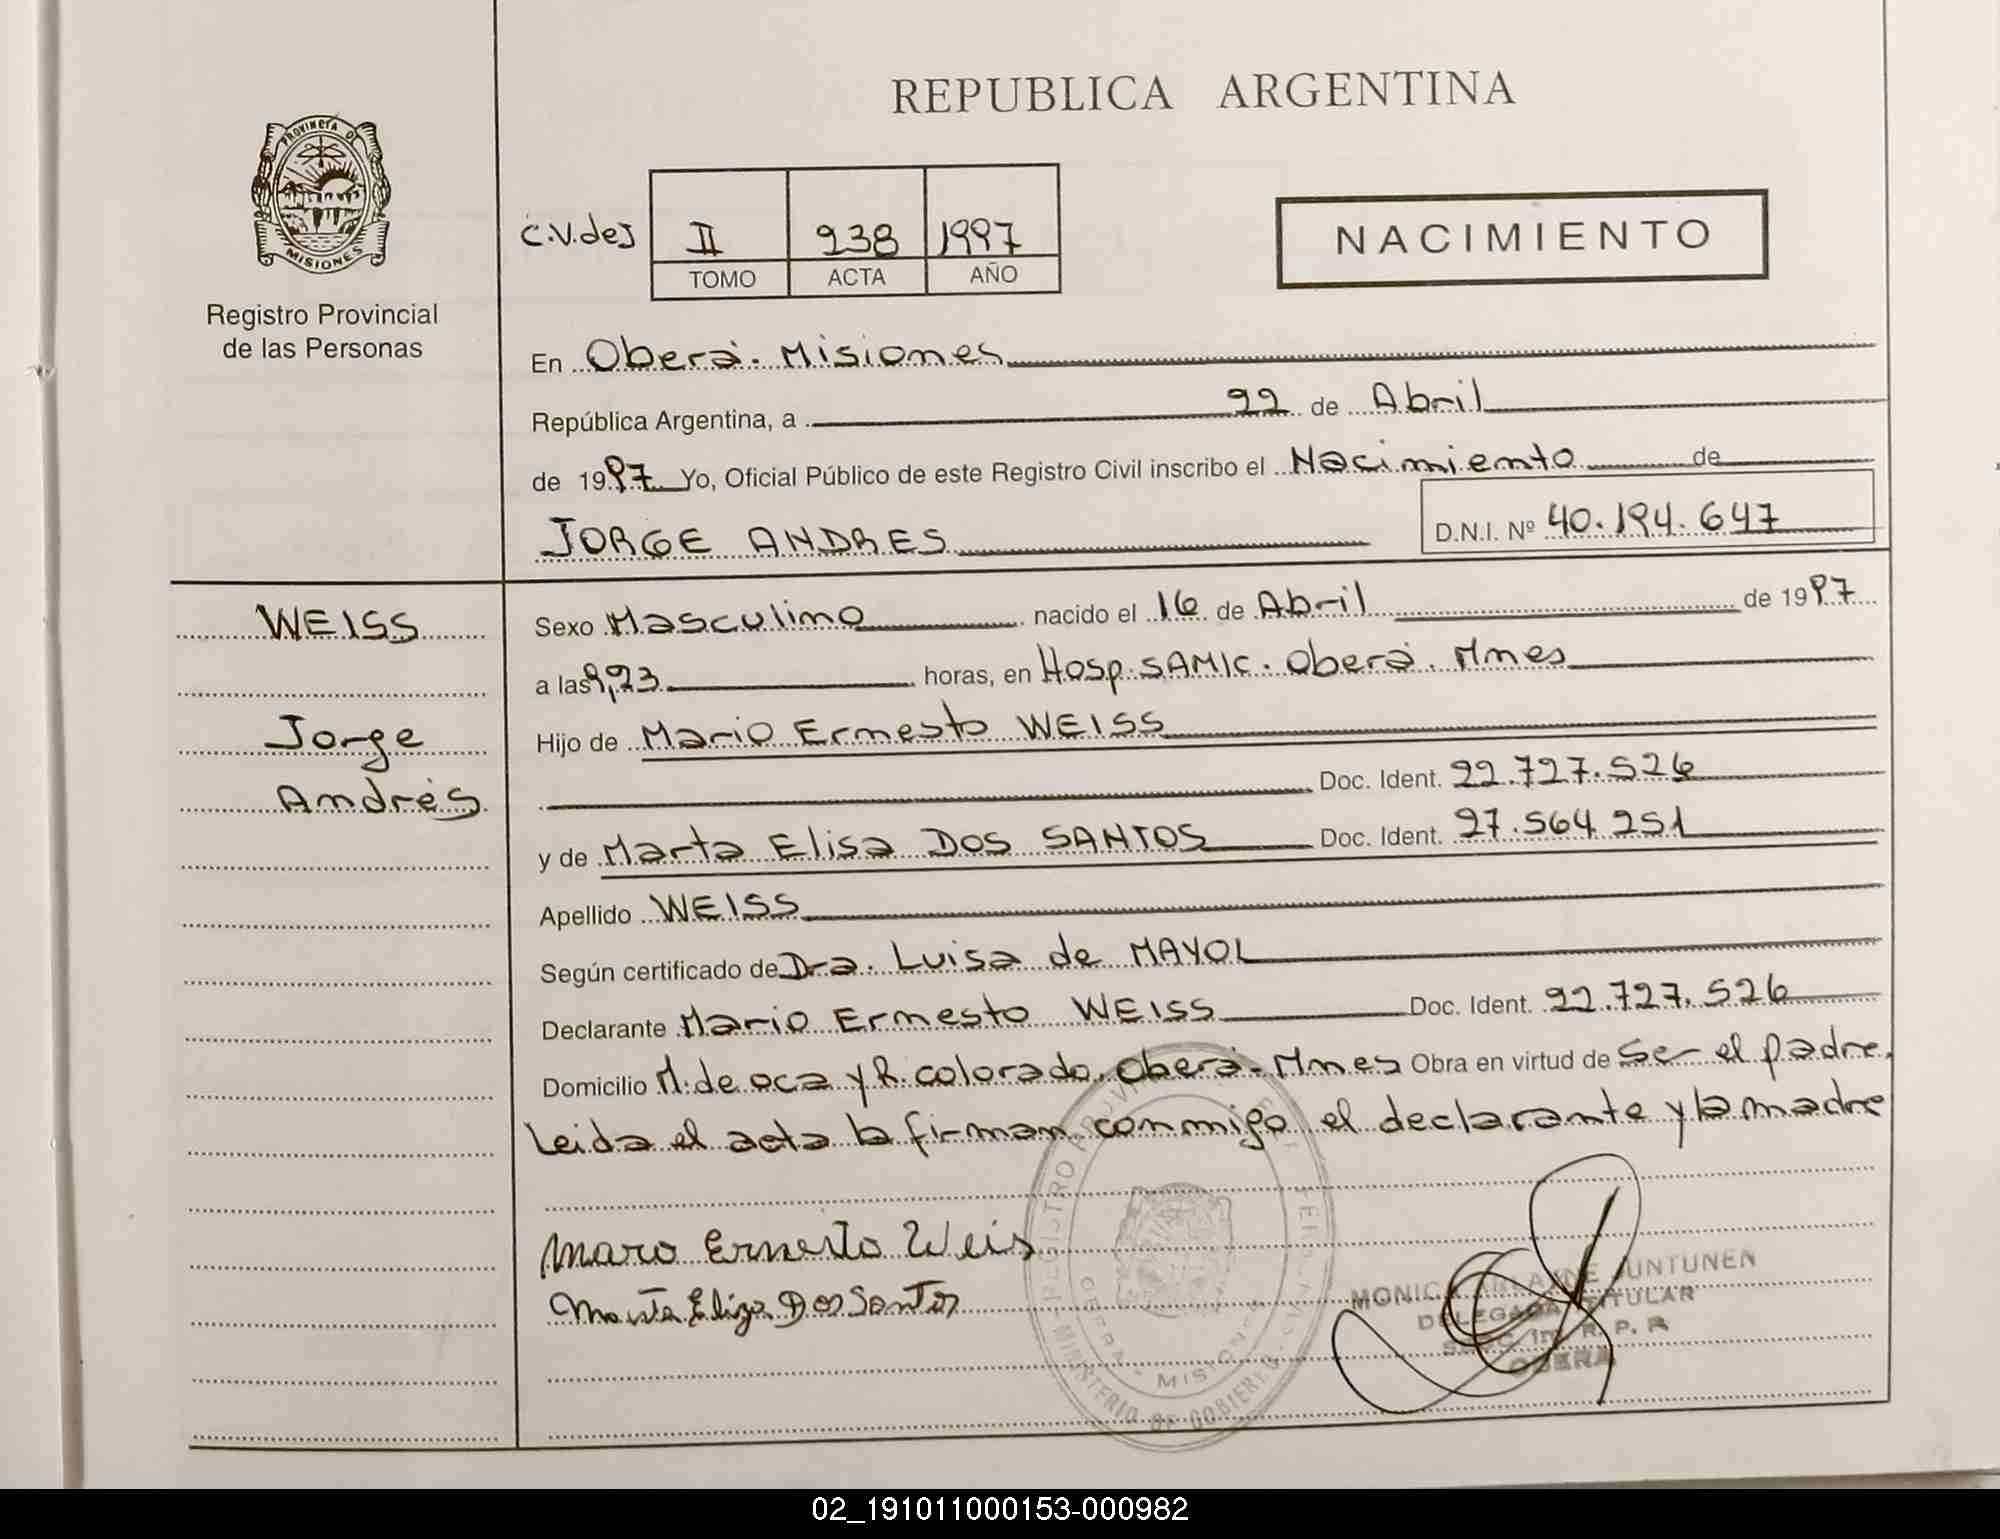 REPUBLICA ARGENTINA
PROVINCIA DE MISIONES
Registro Provincial
de las Personas
C.V. de J
II 238 1997
TOMO ACTA AÑO
NACIMIENTO
En Oberá. Misiones
República Argentina, a 22 de Abril
de 1997 Yo, Oficial Público de este Registro Civil inscribo el Nacimiento de
JORGE ANDRES D.N.I. Nº 40.194.647
WEISS
Jorge
Andrés
Sexo Masculino nacido el 16 de Abril de 1997
a las 9,23 horas, en Hosp. SAMIC. Oberá. Mnes
Hijo de Mario Ernesto WEISS
Doc. Ident. 22.727.526
y de Marta Elisa DOS SANTOS Doc. Ident. 27.564.251
Apellido WEISS
Según certificado de Dra. Luisa de MAYOL
Declarante Mario Ernesto WEISS Doc. Ident. 22.727.526
Domicilio M. de oca y R. colorado. Oberá. Mnes Obra en virtud de ser el padre.
Leida el acta la firman conmigo el declarante y la madre
Maro Ernesto Weis
Marta Eliza Dos Santos
REGISTRO PROVINCIAL
OBERA - MISIONES
MINISTERIO DE GOBIERNO
MONICA JUNTUNEN
DELEGADA TITULAR
R. P. P.
OBERA
02_191011000153-000982